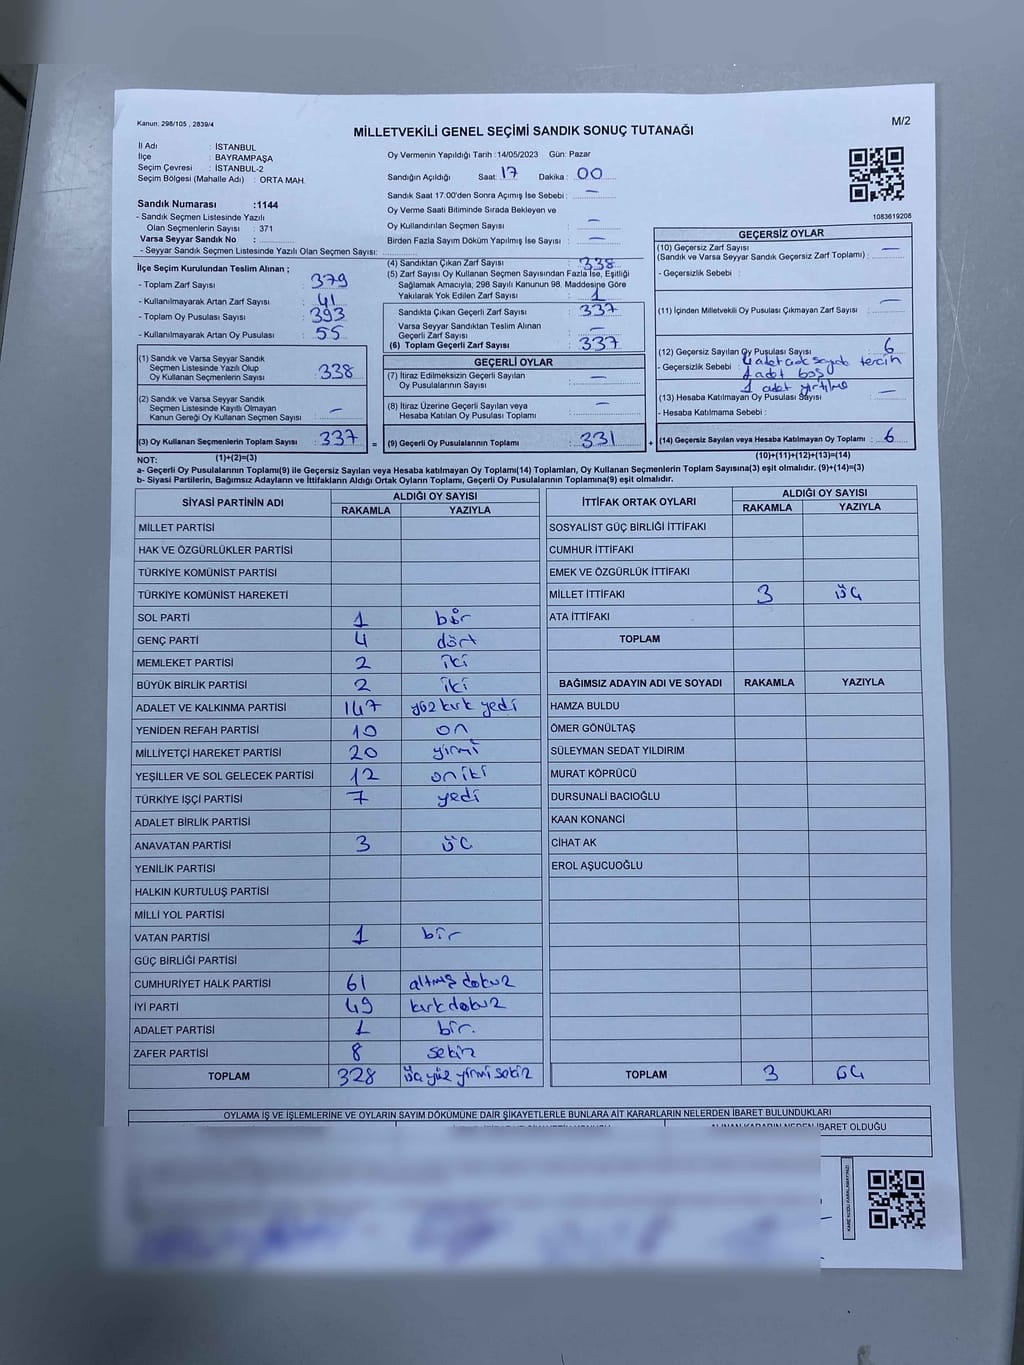 Kanun: 298/105 , 2839/4
M/2
MİLLETVEKİLİ GENEL SEÇİMİ SANDIK SONUÇ TUTANAĞI
İl Adı : İSTANBUL
İlçe : BAYRAMPAŞA
Seçim Çevresi : İSTANBUL-2
Seçim Bölgesi (Mahalle Adı) : ORTA MAH.
Oy Vermenin Yapıldığı Tarih :14/05/2023 Gün: Pazar
Sandığın Açıldığı Saat: 17 Dakika: 00
Sandık Saat 17.00'den Sonra Açımış İse Sebebi : —
Oy Verme Saati Bitiminde Sırada Bekleyen ve
Oy Kullandırılan Seçmen Sayısı : —
Birden Fazla Sayım Döküm Yapılmış İse Sayısı : —
1083619208
Sandık Numarası :1144
- Sandık Seçmen Listesinde Yazılı
Olan Seçmenlerin Sayısı : 371
Varsa Seyyar Sandık No :
- Seyyar Sandık Seçmen Listesinde Yazılı Olan Seçmen Sayısı:
İlçe Seçim Kurulundan Teslim Alınan ;
- Toplam Zarf Sayısı : 379
- Kullanılmayarak Artan Zarf Sayısı : 41
- Toplam Oy Pusulası Sayısı : 393
- Kullanılmayarak Artan Oy Pusulası : 55
(1) Sandık ve Varsa Seyyar Sandık
Seçmen Listesinde Yazılı Olup
Oy Kullanan Seçmenlerin Sayısı : 338
(2) Sandık ve Varsa Seyyar Sandık
Seçmen Listesinde Kayıtlı Olmayan
Kanun Gereği Oy Kullanan Seçmen Sayısı : —
(3) Oy Kullanan Seçmenlerin Toplam Sayısı : 337 =
(1)+(2)=(3)
(4) Sandıktan Çıkan Zarf Sayısı : 338
(5) Zarf Sayısı Oy Kullanan Seçmen Sayısından Fazla İse, Eşitliği
Sağlamak Amacıyla; 298 Sayılı Kanunun 98. Maddesine Göre
Yakılarak Yok Edilen Zarf Sayısı : 1
Sandıkta Çıkan Geçerli Zarf Sayısı : 337
Varsa Seyyar Sandıktan Teslim Alınan
Geçerli Zarf Sayısı : —
(6) Toplam Geçerli Zarf Sayısı : 337
GEÇERLİ OYLAR
(7) İtiraz Edilmeksizin Geçerli Sayılan
Oy Pusulalarının Sayısı : —
(8) İtiraz Üzerine Geçerli Sayılan veya
Hesaba Katılan Oy Pusulası Toplamı : —
(9) Geçerli Oy Pusulalarının Toplamı : 331 +
GEÇERSİZ OYLAR
(10) Geçersiz Zarf Sayısı —
(Sandık ve Varsa Seyyar Sandık Geçersiz Zarf Toplamı) :
- Geçersizlik Sebebi :
(11) İçinden Milletvekili Oy Pusulası Çıkmayan Zarf Sayısı : —
(12) Geçersiz Sayılan Oy Pusulası Sayısı : 6
- Geçersizlik Sebebi : 4 adet çok sayıda tercih
1 adet boş
1 adet yırtılma
(13) Hesaba Katılmayan Oy Pusulası Sayısı : —
- Hesaba Katılmama Sebebi :
(14) Geçersiz Sayılan veya Hesaba Katılmayan Oy Toplamı : 6
(10)+(11)+(12)+(13)=(14)
NOT:
a- Geçerli Oy Pusulalarının Toplamı(9) ile Geçersiz Sayılan veya Hesaba katılmayan Oy Toplamı(14) Toplamları, Oy Kullanan Seçmenlerin Toplam Sayısına(3) eşit olmalıdır. (9)+(14)=(3)
b- Siyasi Partilerin, Bağımsız Adayların ve İttifakların Aldığı Ortak Oyların Toplamı, Geçerli Oy Pusulalarının Toplamına(9) eşit olmalıdır.
SİYASİ PARTİNİN ADI ALDIĞI OY SAYISI
RAKAMLA YAZIYLA
MİLLET PARTİSİ
HAK VE ÖZGÜRLÜKLER PARTİSİ
TÜRKİYE KOMÜNİST PARTİSİ
TÜRKİYE KOMÜNİST HAREKETİ
SOL PARTİ 1 bir
GENÇ PARTİ 4 dört
MEMLEKET PARTİSİ 2 iki
BÜYÜK BİRLİK PARTİSİ 2 iki
ADALET VE KALKINMA PARTİSİ 147 yüz kırk yedi
YENİDEN REFAH PARTİSİ 10 on
MİLLİYETÇİ HAREKET PARTİSİ 20 yirmi
YEŞİLLER VE SOL GELECEK PARTİSİ 12 oniki
TÜRKİYE İŞÇİ PARTİSİ 7 yedi
ADALET BİRLİK PARTİSİ
ANAVATAN PARTİSİ 3 üç
YENİLİK PARTİSİ
HALKIN KURTULUŞ PARTİSİ
MİLLİ YOL PARTİSİ
VATAN PARTİSİ 1 bir
GÜÇ BİRLİĞİ PARTİSİ
CUMHURİYET HALK PARTİSİ 61 altmış dokuz
İYİ PARTİ 49 kırk dokuz
ADALET PARTİSİ 1 bir.
ZAFER PARTİSİ 8 sekiz
TOPLAM 328 üç yüz yirmi sekiz
İTTİFAK ORTAK OYLARI ALDIĞI OY SAYISI
RAKAMLA YAZIYLA
SOSYALİST GÜÇ BİRLİĞİ İTTİFAKI
CUMHUR İTTİFAKI
EMEK VE ÖZGÜRLÜK İTTİFAKI
MİLLET İTTİFAKI 3 üç
ATA İTTİFAKI
TOPLAM
BAĞIMSIZ ADAYIN ADI VE SOYADI RAKAMLA YAZIYLA
HAMZA BULDU
ÖMER GÖNÜLTAŞ
SÜLEYMAN SEDAT YILDIRIM
MURAT KÖPRÜCÜ
DURSUNALİ BACIOĞLU
KAAN KONANCİ
CİHAT AK
EROL AŞUCUOĞLU
TOPLAM 3 üç
OYLAMA İŞ VE İŞLEMLERİNE VE OYLARIN SAYIM DÖKÜMÜNE DAİR ŞİKAYETLERLE BUNLARA AİT KARARLARIN NELERDEN İBARET BULUNDUKLARI
ALINAN KARARIN NEDEN İBARET OLDUĞU
KARE KODU KARALAMAYINIZ!